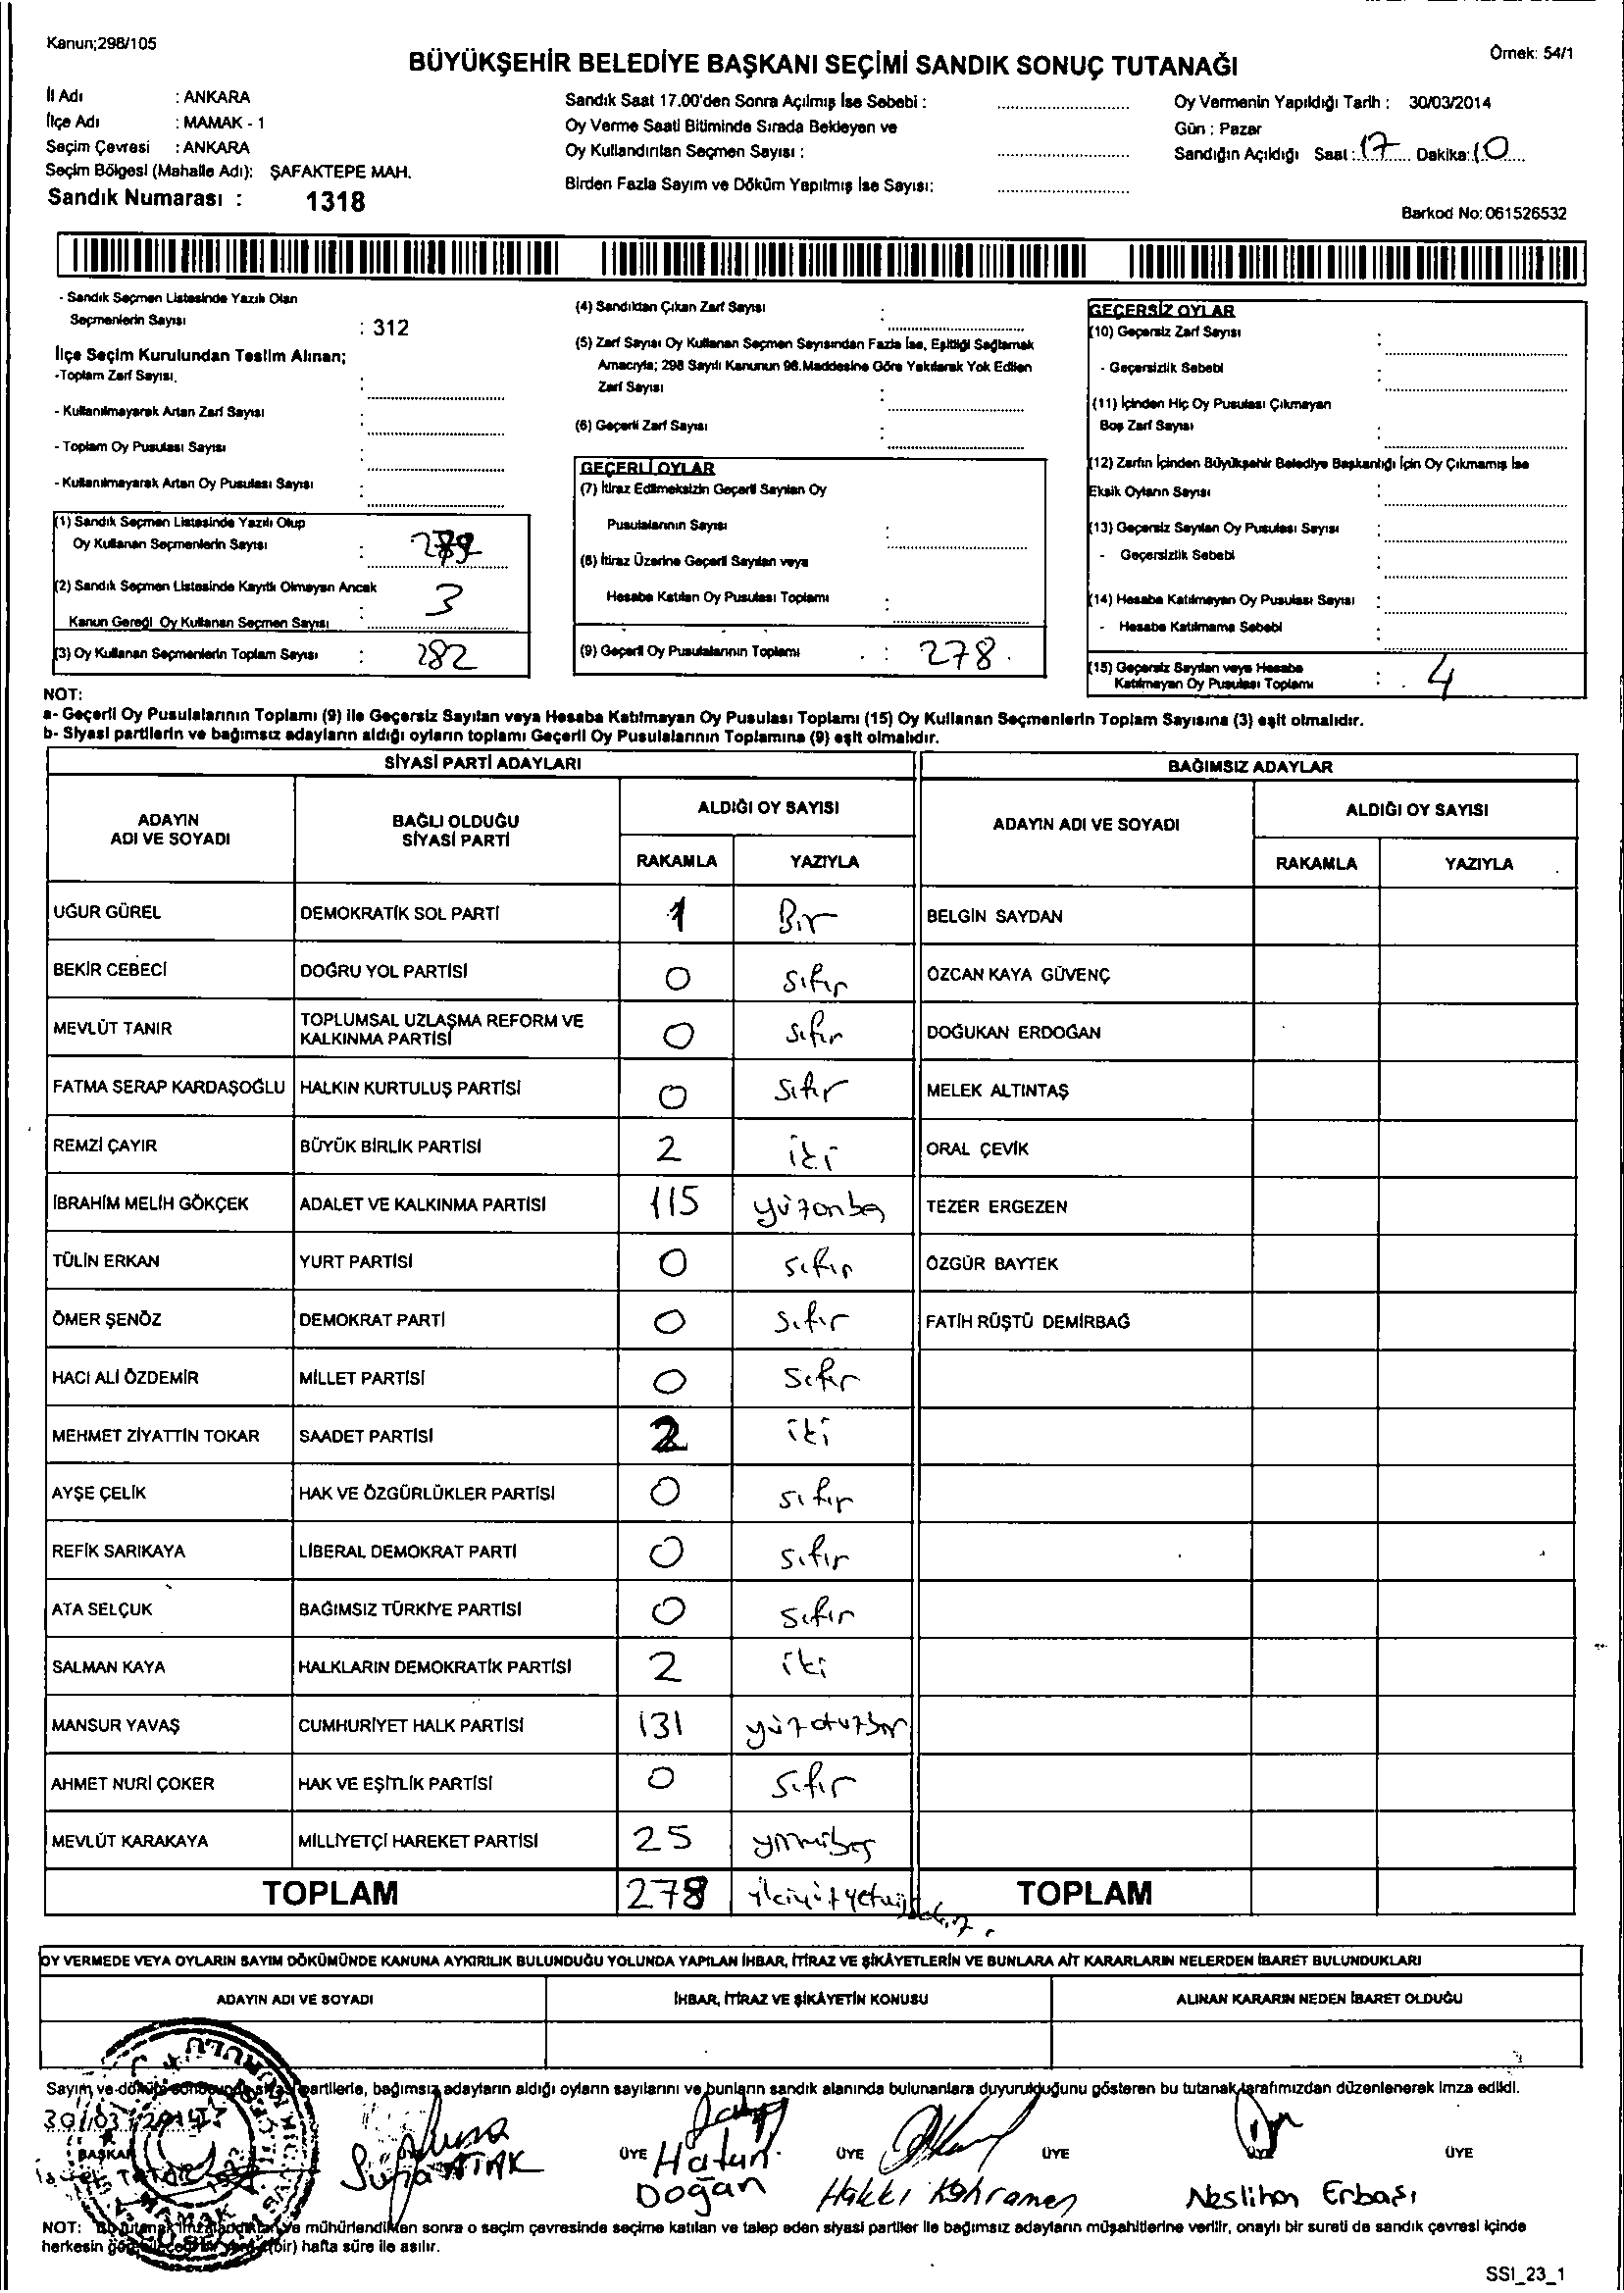 Kanun;298/105
Örnek: 54/1
BÜYÜKŞEHİR BELEDİYE BAŞKANI SEÇİMİ SANDIK SONUÇ TUTANAĞI
İl Adı : ANKARA
İlçe Adı : MAMAK - 1
Seçim Çevresi : ANKARA
Seçim Bölgesi (Mahalle Adı): ŞAFAKTEPE MAH.
Sandık Numarası : 1318
Sandık Saat 17.00'den Sonra Açılmış İse Sebebi :
Oy Verme Saati Bitiminde Sırada Bekleyen ve
Oy Kullandırılan Seçmen Sayısı :
Birden Fazla Sayım ve Döküm Yapılmış İse Sayısı:
Oy Vermenin Yapıldığı Tarih : 30/03/2014
Gün : Pazar
Sandığın Açıldığı Saat : 17 Dakika: 10
Barkod No: 061526532
- Sandık Seçmen Listesinde Yazılı Olan
Seçmenlerin Sayısı : 312
İlçe Seçim Kurulundan Teslim Alınan;
-Toplam Zarf Sayısı. :
- Kullanılmayarak Artan Zarf Sayısı :
- Toplam Oy Pusulası Sayısı :
- Kullanılmayarak Artan Oy Pusulası Sayısı :
(1) Sandık Seçmen Listesinde Yazılı Olup
Oy Kullanan Seçmenlerin Sayısı :
(2) Sandık Seçmen Listesinde Kayıtlı Olmayan Ancak
Kanun Gereği Oy Kullanan Seçmen Sayısı : 3
(3) Oy Kullanan Seçmenlerin Toplam Sayısı : 282
(4) Sandıktan Çıkan Zarf Sayısı :
(5) Zarf Sayısı Oy Kullanan Seçmen Sayısından Fazla İse, Eşitliği Sağlamak
Amacıyla; 298 Sayılı Kanunun 98.Maddesine Göre Yakılarak Yok Edilen
Zarf Sayısı :
(6) Geçerli Zarf Sayısı :
GEÇERLİ OYLAR
(7) İtiraz Edilmeksizin Geçerli Sayılan Oy
Pusulalarının Sayısı :
(8) İtiraz Üzerine Geçerli Sayılan veya
Hesaba Katılan Oy Pusulası Toplamı :
(9) Geçerli Oy Pusulalarının Toplamı : 278
GEÇERSİZ OYLAR
(10) Geçersiz Zarf Sayısı :
- Geçersizlik Sebebi :
(11) İçinden Hiç Oy Pusulası Çıkmayan
Boş Zarf Sayısı :
(12) Zarfın İçinden Büyükşehir Belediye Başkanlığı İçin Oy Çıkmamış İse
Eksik Oyların Sayısı :
(13) Geçersiz Sayılan Oy Pusulası Sayısı :
- Geçersizlik Sebebi :
(14) Hesaba Katılmayan Oy Pusulası Sayısı :
- Hesaba Katılmama Sebebi :
(15) Geçersiz Sayılan veya Hesaba
Katılmayan Oy Pusulası Toplamı : 4
NOT:
a- Geçerli Oy Pusulalarının Toplamı (9) ile Geçersiz Sayılan veya Hesaba Katılmayan Oy Pusulası Toplamı (15) Oy Kullanan Seçmenlerin Toplam Sayısına (3) eşit olmalıdır.
b- Siyasi partilerin ve bağımsız adayların aldığı oyların toplamı Geçerli Oy Pusulalarının Toplamına (9) eşit olmalıdır.
SİYASİ PARTİ ADAYLARI BAĞIMSIZ ADAYLAR
ADAYIN ADI VE SOYADI BAĞLI OLDUĞU SİYASİ PARTİ ALDIĞI OY SAYISI ADAYIN ADI VE SOYADI ALDIĞI OY SAYISI
RAKAMLA YAZIYLA RAKAMLA YAZIYLA
UĞUR GÜREL DEMOKRATİK SOL PARTİ 1 Bir BELGİN SAYDAN
BEKİR CEBECİ DOĞRU YOL PARTİSİ 0 sıfır ÖZCAN KAYA GÜVENÇ
MEVLÜT TANIR TOPLUMSAL UZLAŞMA REFORM VE KALKINMA PARTİSİ 0 sıfır DOĞUKAN ERDOĞAN
FATMA SERAP KARDAŞOĞLU HALKIN KURTULUŞ PARTİSİ 0 sıfır MELEK ALTINTAŞ
REMZİ ÇAYIR BÜYÜK BİRLİK PARTİSİ 2 iki ORAL ÇEVİK
İBRAHİM MELİH GÖKÇEK ADALET VE KALKINMA PARTİSİ 115 yüzonbeş TEZER ERGEZEN
TÜLİN ERKAN YURT PARTİSİ 0 sıfır ÖZGÜR BAYTEK
ÖMER ŞENÖZ DEMOKRAT PARTİ 0 sıfır FATİH RÜŞTÜ DEMİRBAĞ
HACI ALİ ÖZDEMİR MİLLET PARTİSİ 0 sıfır
MEHMET ZİYATTİN TOKAR SAADET PARTİSİ 2 iki
AYŞE ÇELİK HAK VE ÖZGÜRLÜKLER PARTİSİ 0 sıfır
REFİK SARIKAYA LİBERAL DEMOKRAT PARTİ 0 sıfır
ATA SELÇUK BAĞIMSIZ TÜRKİYE PARTİSİ 0 sıfır
SALMAN KAYA HALKLARIN DEMOKRATİK PARTİSİ 2 iki
MANSUR YAVAŞ CUMHURİYET HALK PARTİSİ 131 yüzotuzbir
AHMET NURİ ÇOKER HAK VE EŞİTLİK PARTİSİ 0 sıfır
MEVLÜT KARAKAYA MİLLİYETÇİ HAREKET PARTİSİ 25 yirmibeş
TOPLAM 278 ikiyüzyetmişsekiz. TOPLAM
OY VERMEDE VEYA OYLARIN SAYIM DÖKÜMÜNDE KANUNA AYKIRILIK BULUNDUĞU YOLUNDA YAPILAN İHBAR, İTİRAZ VE ŞİKÂYETLERİN VE BUNLARA AİT KARARLARIN NELERDEN İBARET BULUNDUKLARI
ADAYIN ADI VE SOYADI İHBAR, İTİRAZ VE ŞİKÂYETİN KONUSU ALINAN KARARIN NEDEN İBARET OLDUĞU
Sayım ve döküm sonucunda siyasi partilerle, bağımsız adayların aldığı oyların sayılarını ve bunların sandık alanında bulunanlara duyurulduğunu gösteren bu tutanak tarafımızdan düzenlenerek imza edildi.
30/03/2014
BAŞKAN ÜYE ÜYE ÜYE ÜYE ÜYE
Hatun Doğan Hakkı Kahraman Neslihan Erbaşı
NOT: Bu tutanak imzalandıktan ve mühürlendikten sonra o seçim çevresinde seçime katılan ve talep eden siyasi partiler ile bağımsız adayların müşahitlerine verilir, onaylı bir sureti de sandık çevresi içinde
herkesin (bir) hafta süre ile asılır.
SSI_23_1